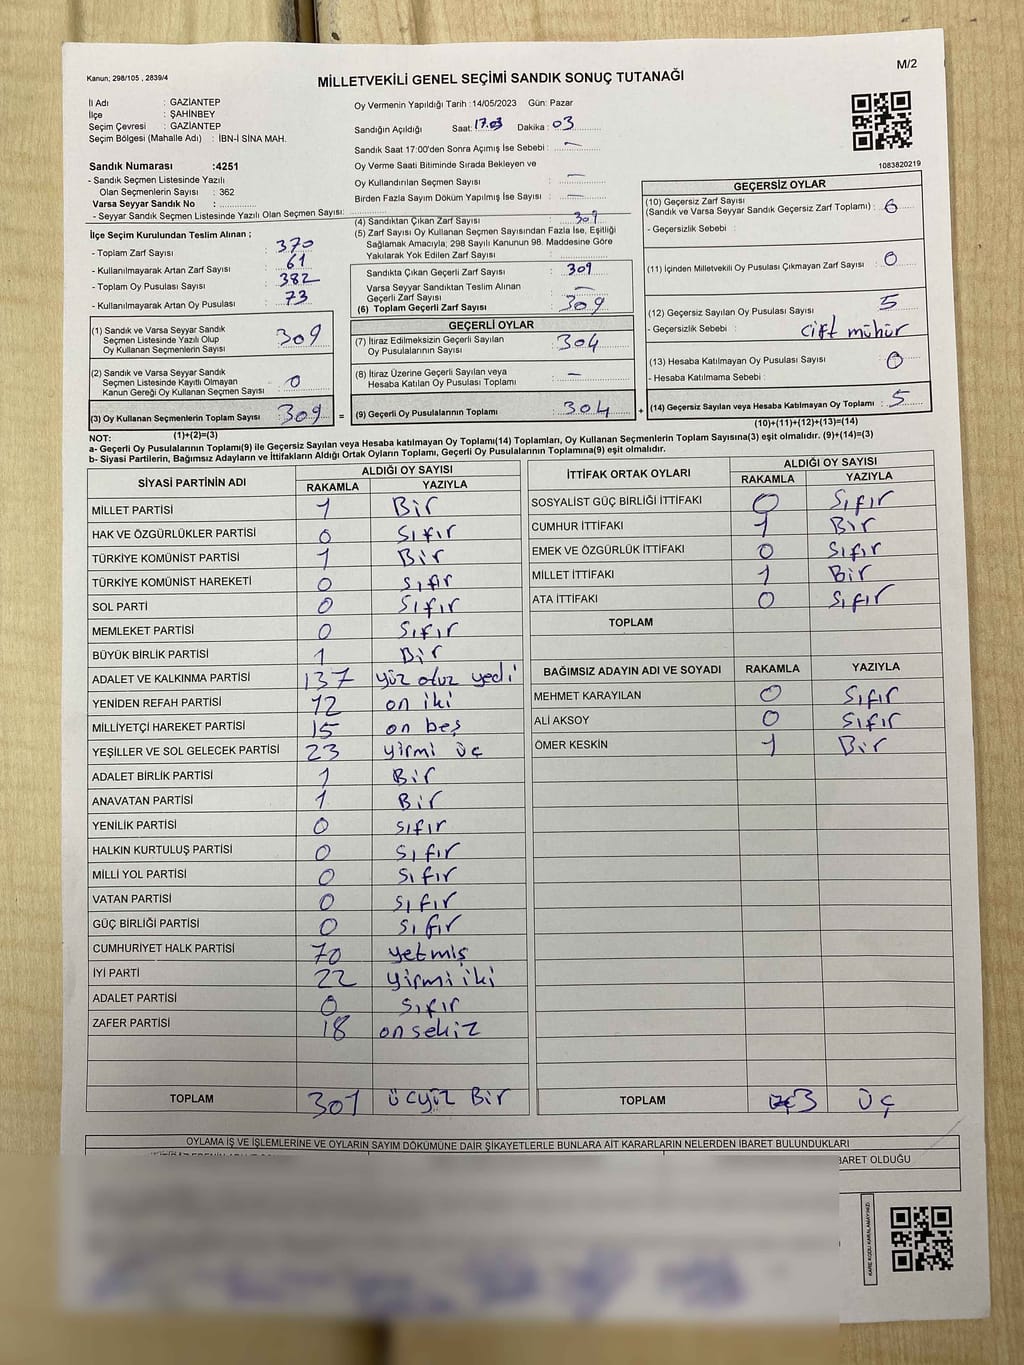 Kanun; 298/105 , 2839/4
M/2
MİLLETVEKİLİ GENEL SEÇİMİ SANDIK SONUÇ TUTANAĞI
İl Adı : GAZİANTEP
İlçe : ŞAHİNBEY
Seçim Çevresi : GAZİANTEP
Seçim Bölgesi (Mahalle Adı) : İBN-İ SİNA MAH.
Sandık Numarası :4251
- Sandık Seçmen Listesinde Yazılı
Olan Seçmenlerin Sayısı : 362
Varsa Seyyar Sandık No :
- Seyyar Sandık Seçmen Listesinde Yazılı Olan Seçmen Sayısı:
Oy Vermenin Yapıldığı Tarih :14/05/2023 Gün: Pazar
Sandığın Açıldığı Saat: 17.03 Dakika : 03
Sandık Saat 17:00'den Sonra Açımış İse Sebebi : —
Oy Verme Saati Bitiminde Sırada Bekleyen ve
Oy Kullandırılan Seçmen Sayısı : —
Birden Fazla Sayım Döküm Yapılmış İse Sayısı : —
1083820219
İlçe Seçim Kurulundan Teslim Alınan ;
- Toplam Zarf Sayısı : 370
- Kullanılmayarak Artan Zarf Sayısı : 61
- Toplam Oy Pusulası Sayısı : 382
- Kullanılmayarak Artan Oy Pusulası : 73
(1) Sandık ve Varsa Seyyar Sandık
Seçmen Listesinde Yazılı Olup
Oy Kullanan Seçmenlerin Sayısı : 309
(2) Sandık ve Varsa Seyyar Sandık
Seçmen Listesinde Kayıtlı Olmayan
Kanun Gereği Oy Kullanan Seçmen Sayısı : 0
(3) Oy Kullanan Seçmenlerin Toplam Sayısı : 309 =
(1)+(2)=(3)
(4) Sandıktan Çıkan Zarf Sayısı : 309
(5) Zarf Sayısı Oy Kullanan Seçmen Sayısından Fazla İse, Eşitliği
Sağlamak Amacıyla; 298 Sayılı Kanunun 98. Maddesine Göre
Yakılarak Yok Edilen Zarf Sayısı :
Sandıkta Çıkan Geçerli Zarf Sayısı : 309
Varsa Seyyar Sandıktan Teslim Alınan
Geçerli Zarf Sayısı : —
(6) Toplam Geçerli Zarf Sayısı : 309
GEÇERLİ OYLAR
(7) İtiraz Edilmeksizin Geçerli Sayılan
Oy Pusulalarının Sayısı : 304
(8) İtiraz Üzerine Geçerli Sayılan veya
Hesaba Katılan Oy Pusulası Toplamı : —
(9) Geçerli Oy Pusulalarının Toplamı : 304 +
GEÇERSİZ OYLAR
(10) Geçersiz Zarf Sayısı
(Sandık ve Varsa Seyyar Sandık Geçersiz Zarf Toplamı) : 6
- Geçersizlik Sebebi :
(11) İçinden Milletvekili Oy Pusulası Çıkmayan Zarf Sayısı : 0
(12) Geçersiz Sayılan Oy Pusulası Sayısı : 5
- Geçersizlik Sebebi : Çift mühür
(13) Hesaba Katılmayan Oy Pusulası Sayısı : 0
- Hesaba Katılmama Sebebi :
(14) Geçersiz Sayılan veya Hesaba Katılmayan Oy Toplamı : 5
(10)+(11)+(12)+(13)=(14)
NOT:
a- Geçerli Oy Pusulalarının Toplamı(9) ile Geçersiz Sayılan veya Hesaba katılmayan Oy Toplamı(14) Toplamları, Oy Kullanan Seçmenlerin Toplam Sayısına(3) eşit olmalıdır. (9)+(14)=(3)
b- Siyasi Partilerin, Bağımsız Adayların ve İttifakların Aldığı Ortak Oyların Toplamı, Geçerli Oy Pusulalarının Toplamına(9) eşit olmalıdır.
SİYASİ PARTİNİN ADI ALDIĞI OY SAYISI
RAKAMLA YAZIYLA
MİLLET PARTİSİ 1 Bir
HAK VE ÖZGÜRLÜKLER PARTİSİ 0 Sıfır
TÜRKİYE KOMÜNİST PARTİSİ 1 Bir
TÜRKİYE KOMÜNİST HAREKETİ 0 Sıfır
SOL PARTİ 0 Sıfır
MEMLEKET PARTİSİ 0 Sıfır
BÜYÜK BİRLİK PARTİSİ 1 Bir
ADALET VE KALKINMA PARTİSİ 137 yüz otuz yedi
YENİDEN REFAH PARTİSİ 12 on iki
MİLLİYETÇİ HAREKET PARTİSİ 15 on beş
YEŞİLLER VE SOL GELECEK PARTİSİ 23 yirmi üç
ADALET BİRLİK PARTİSİ 1 Bir
ANAVATAN PARTİSİ 1 Bir
YENİLİK PARTİSİ 0 Sıfır
HALKIN KURTULUŞ PARTİSİ 0 Sıfır
MİLLİ YOL PARTİSİ 0 Sıfır
VATAN PARTİSİ 0 Sıfır
GÜÇ BİRLİĞİ PARTİSİ 0 Sıfır
CUMHURİYET HALK PARTİSİ 70 yetmiş
İYİ PARTİ 22 yirmi iki
ADALET PARTİSİ 0 Sıfır
ZAFER PARTİSİ 18 onsekiz
TOPLAM 301 ücyüz Bir
İTTİFAK ORTAK OYLARI ALDIĞI OY SAYISI
RAKAMLA YAZIYLA
SOSYALİST GÜÇ BİRLİĞİ İTTİFAKI 0 Sıfır
CUMHUR İTTİFAKI 1 Bir
EMEK VE ÖZGÜRLÜK İTTİFAKI 0 Sıfır
MİLLET İTTİFAKI 1 Bir
ATA İTTİFAKI 0 Sıfır
TOPLAM
BAĞIMSIZ ADAYIN ADI VE SOYADI RAKAMLA YAZIYLA
MEHMET KARAYILAN 0 Sıfır
ALİ AKSOY 0 Sıfır
ÖMER KESKİN 1 Bir
TOPLAM 3 üç
OYLAMA İŞ VE İŞLEMLERİNE VE OYLARIN SAYIM DÖKÜMÜNE DAİR ŞİKAYETLERLE BUNLARA AİT KARARLARIN NELERDEN İBARET BULUNDUKLARI
BARET OLDUĞU
KARE KODU KARALAMAYINIZ!